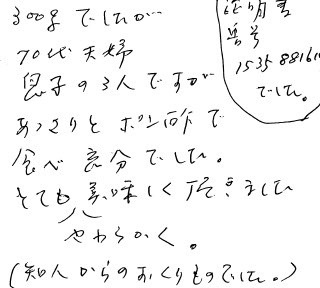 300gでしたが
70代夫婦
息子の3人ですが
あっさりとポン酢で
食べ充分でした。
とても美味しく頂きました
やわらかく。
(知人からのおくりものでした。)
証明書
番号
1535881610
でした。